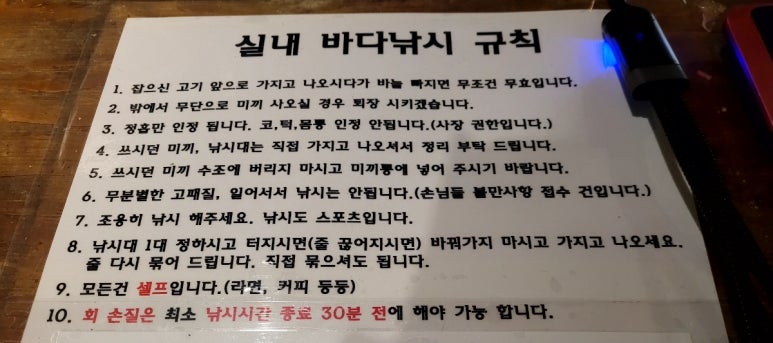 실내 바다낚시 규칙
1. 잡으신 고기 앞으로 가지고 나오시다가 바늘 빠지면 무조건 무효입니다.
2. 밖에서 무단으로 미끼 사오실 경우 퇴장 시키겠습니다.
3. 정흡만 인정 됩니다. 코,턱,몸통 인정 안됩니다.(사장 권한입니다.)
4. 쓰시던 미끼, 낚시대는 직접 가지고 나오셔서 정리 부탁 드립니다.
5. 쓰시던 미끼 수조에 버리지 마시고 미끼통에 넣어 주시기 바랍니다.
6. 무분별한 고패질, 일어서서 낚시는 안됩니다.(손님들 불만사항 접수 건입니다.)
7. 조용히 낚시 해주세요. 낚시도 스포츠입니다.
8. 낚시대 1대 정하시고 터지시면(줄 끊어지시면) 바꿔가지 마시고 가지고 나오세요.
줄 다시 묶어 드립니다. 직접 묶으셔도 됩니다.
9. 모든건 셀프입니다.(라면, 커피 등등)
10. 회 손질은 최소 낚시시간 종료 30분 전에 해야 가능 합니다.